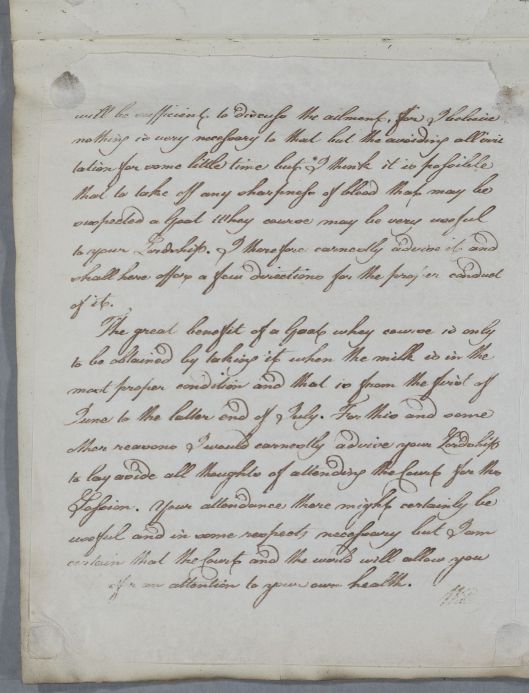 will be sufficient to discuss the ailment, for I believe
nothing is very necessary to that but the avoiding all irri
tation for some little time but I think it is possible
that to take off any sharpness of blood that may be
suspected a Goat Whey course may be very useful
to your Lordship. I therefore earnestly advise it and
shall here offer a few directions for the proper conduct
of it.
The great benefit of a Goat whey course is only
to be obtained by taking it when the milk is in the
most proper condition and that is from the first of
June to the latter end of July. For this and some
other reasons I would earnestly advise your Lordship
to lay aside all thoughts of attending the Court for the
Session. Your attendance there might certainly be
useful and in some respects necessary but I am
certain that the Court and the world will allow you
an attention to your own health.